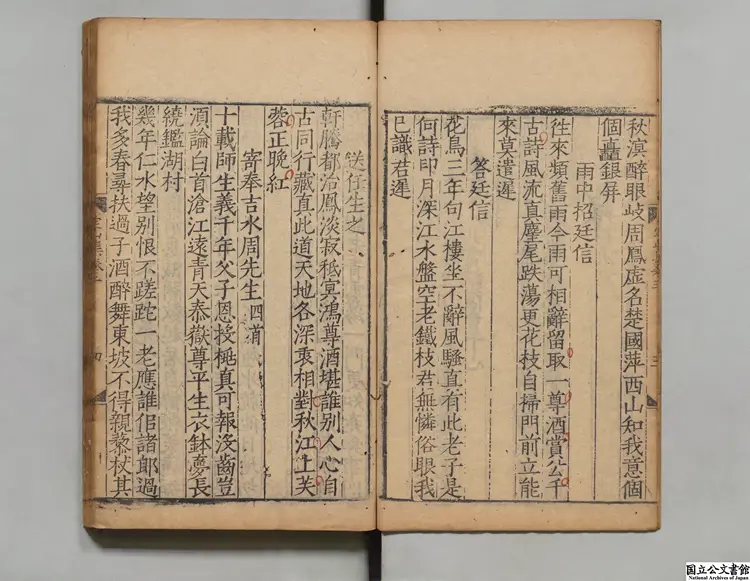 秋溟醉眼岐周鳳虛名楚國萍西山知我意個
個矗銀屏
雨中招廷信
徃來頻舊雨今雨可相辭留取一尊酒賞公千
古詩風流真麈尾跌蕩更花枝自掃門前立能
來莫遣遲
答廷信
花鳥三年句江樓坐不辭風騷直有此老子是
何詩印月深江水盤空老鐵枝君無憐俗眼我
已識君遲
送任生之
軒騰都冶鳳淡寂秪冥鴻尊酒堪誰别人心自
古同行藏直此道天地各深衷相對秋江上芙
蓉正晚紅
寄奉吉水周先生四首
十載師生義千年父子恩授梃真可報沒齒豈
湏論白首滄江遠青天泰嶽尊平生衣鉢夢長
繞鑑湖村
幾年仁水望别恨不蹉跎一老應誰侣諸郎過
我多春尋扶過子酒醉舞東坡不得親藜杖其
国立公文書館
National Archives of Japan